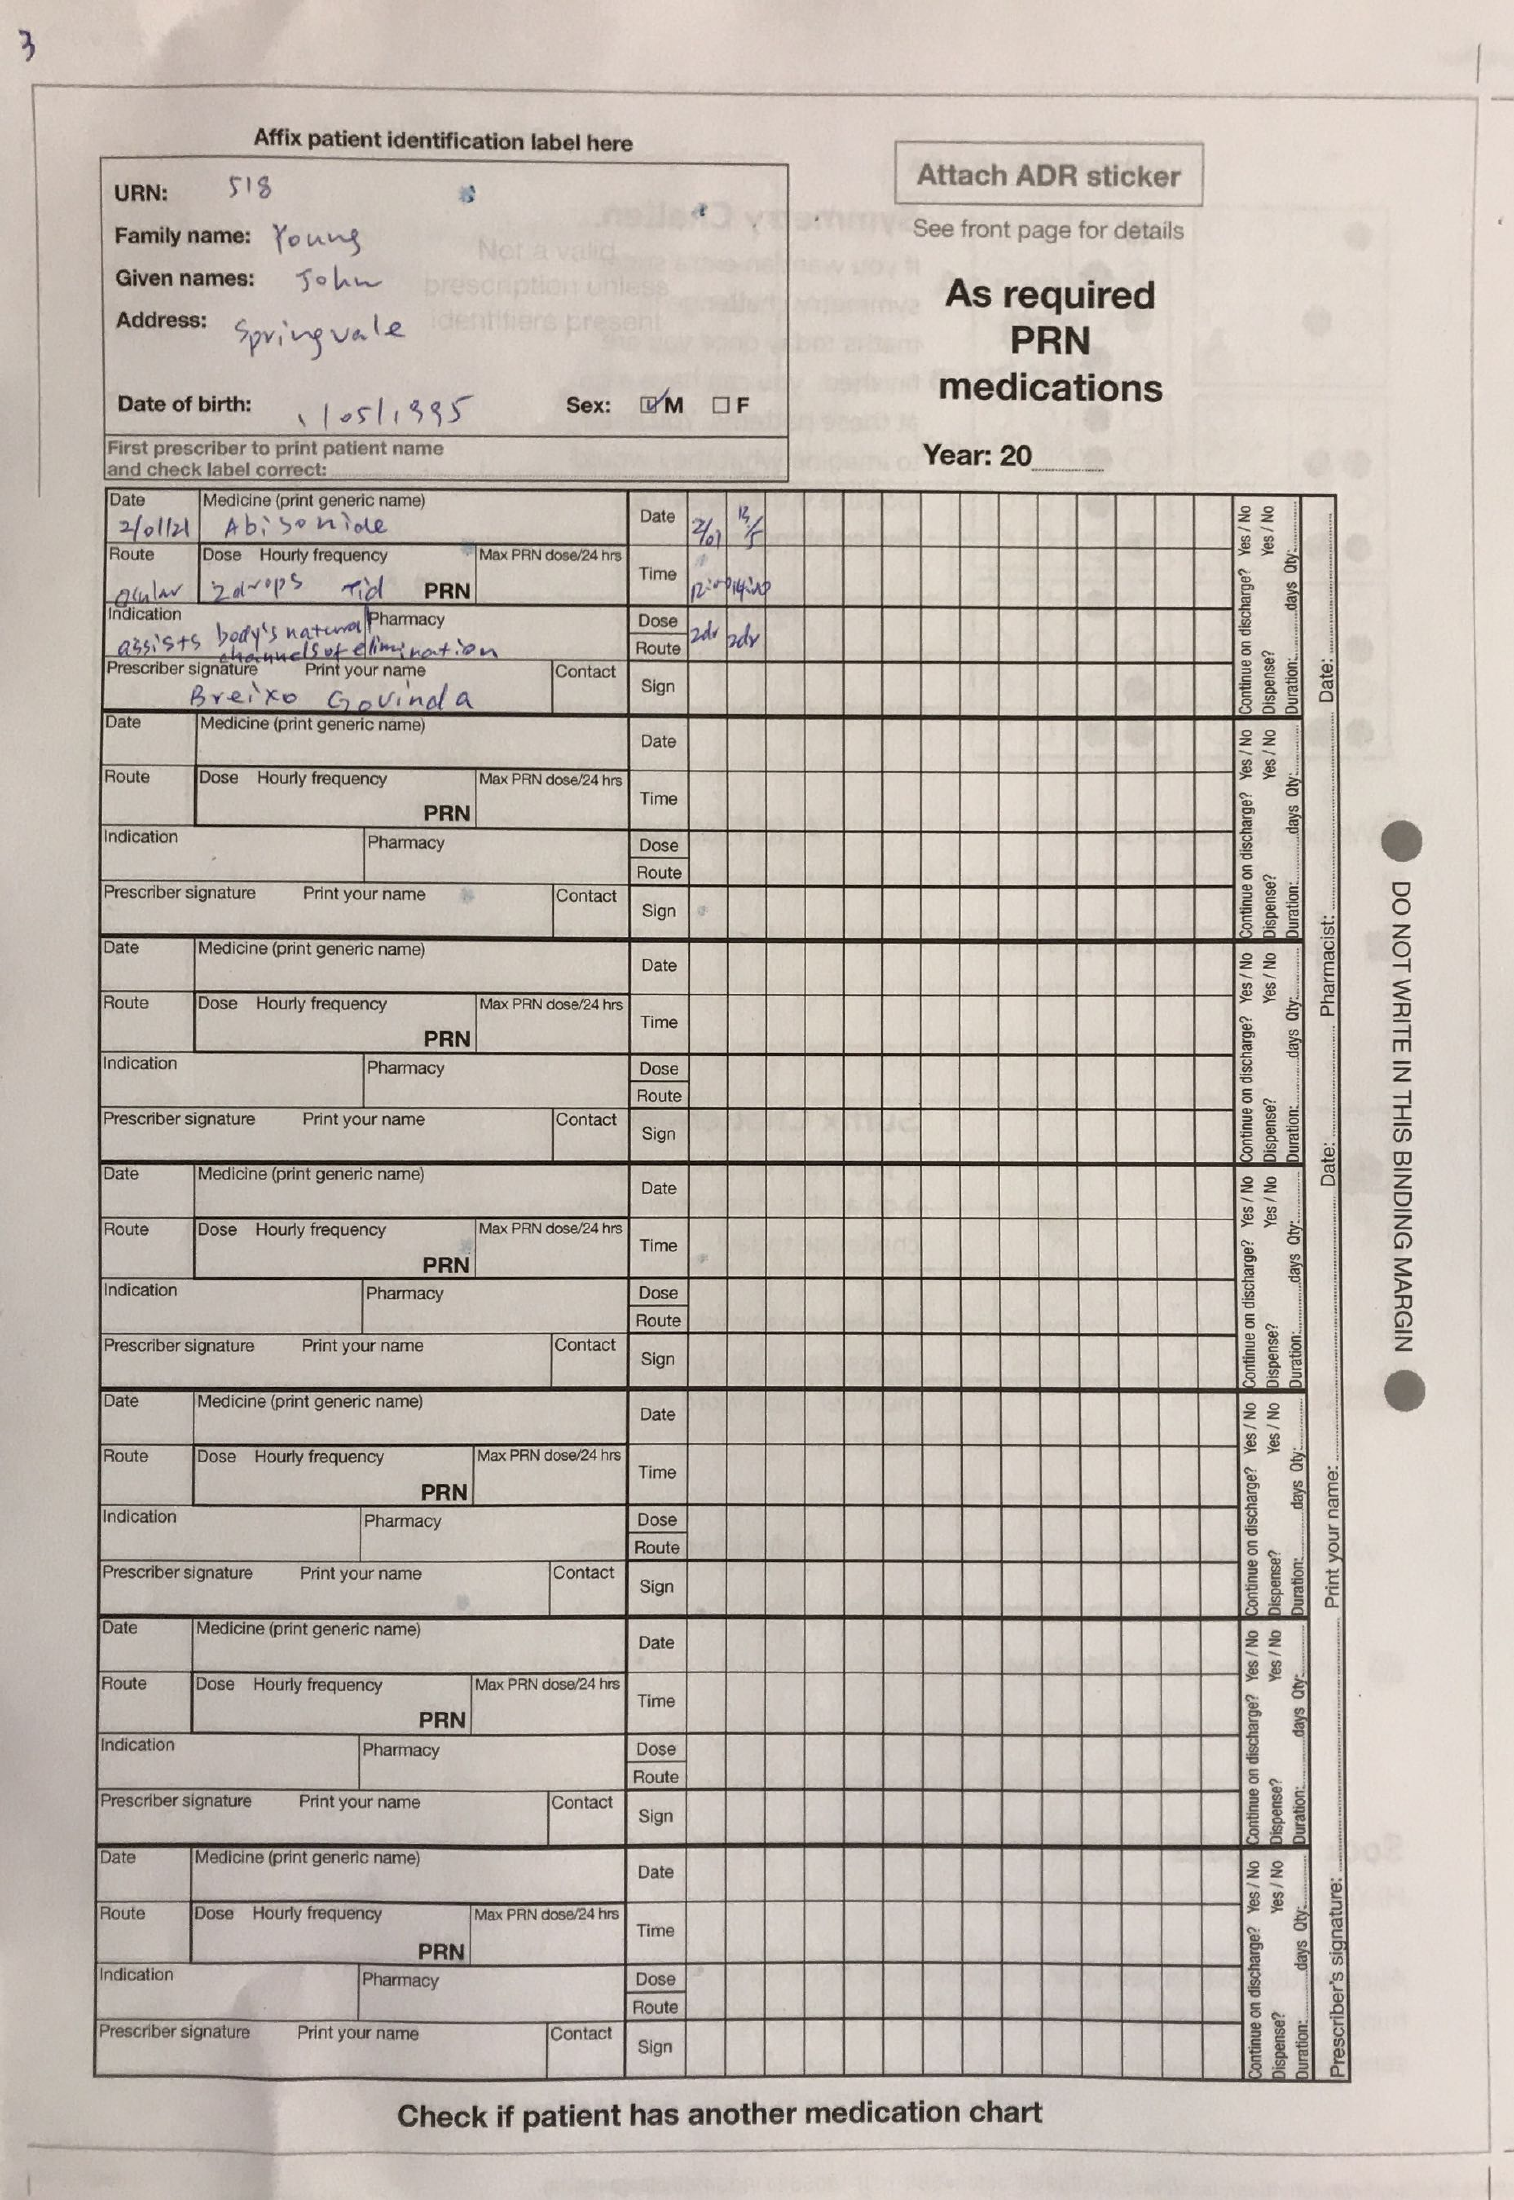 3
Affix patient identification label here
URN: 518
Family name: Young
Given names: John
Address: Springvale
Not a valid
prescription unless
identifiers present
Date of birth: 1/05/1995 Sex: M F
First prescriber to print patient name
and check label correct:
Attach ADR sticker
See front page for details
As required
PRN
medications
Year: 20
Date Medicine (print generic name) Date 2/01
2/01/21 Abisonide
Route Dose Hourly frequency Max PRN dose/24 hrs Time
ocular 2drops Tid PRN
Indication Pharmacy Dose 2dr 2dr
assists body's natural Route
channels of elimination
Prescriber signature Print your name Contact Sign
Breixo Govinda
Continue on discharge? Yes / No
Dispense? Yes / No
Duration: days Qty:
Date Medicine (print generic name) Date
Route Dose Hourly frequency Max PRN dose/24 hrs Time
PRN
Indication Pharmacy Dose
Route
Prescriber signature Print your name Contact Sign
Continue on discharge? Yes / No
Dispense? Yes / No
Duration: days Qty:
Date Medicine (print generic name) Date
Route Dose Hourly frequency Max PRN dose/24 hrs Time
PRN
Indication Pharmacy Dose
Route
Prescriber signature Print your name Contact Sign
Continue on discharge? Yes / No
Dispense? Yes / No
Duration: days Qty:
Date Medicine (print generic name) Date
Route Dose Hourly frequency Max PRN dose/24 hrs Time
PRN
Indication Pharmacy Dose
Route
Prescriber signature Print your name Contact Sign
Continue on discharge? Yes / No
Dispense? Yes / No
Duration: days Qty:
Date Medicine (print generic name) Date
Route Dose Hourly frequency Max PRN dose/24 hrs Time
PRN
Indication Pharmacy Dose
Route
Prescriber signature Print your name Contact Sign
Continue on discharge? Yes / No
Dispense? Yes / No
Duration: days Qty:
Date Medicine (print generic name) Date
Route Dose Hourly frequency Max PRN dose/24 hrs Time
PRN
Indication Pharmacy Dose
Route
Prescriber signature Print your name Contact Sign
Continue on discharge? Yes / No
Dispense? Yes / No
Duration: days Qty:
Date Medicine (print generic name) Date
Route Dose Hourly frequency Max PRN dose/24 hrs Time
PRN
Indication Pharmacy Dose
Route
Prescriber signature Print your name Contact Sign
Continue on discharge? Yes / No
Dispense? Yes / No
Duration: days Qty:
Prescriber's signature: Print your name: Date: Pharmacist: Date:
DO NOT WRITE IN THIS BINDING MARGIN
Check if patient has another medication chart